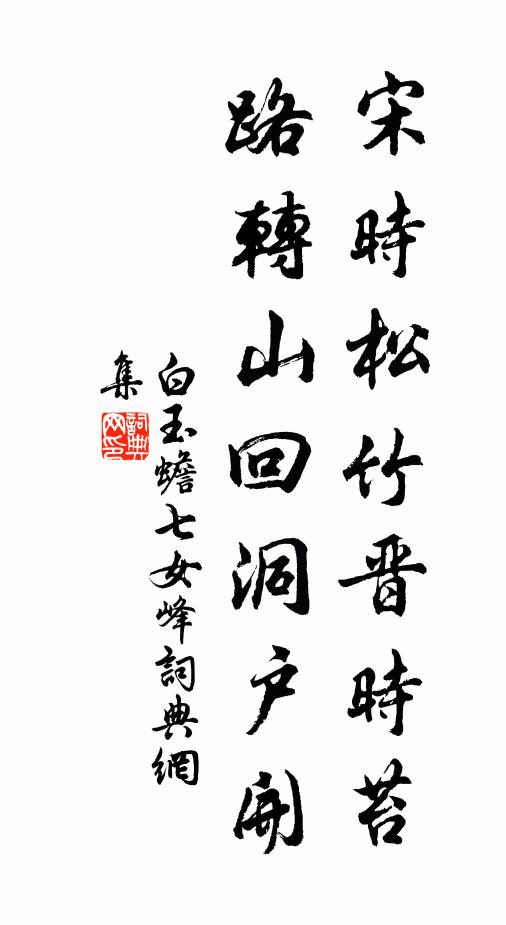 宋時松竹晋時苔
路轉山回洞户開
白玉蟾七女峰詞典網
集
詞典網印